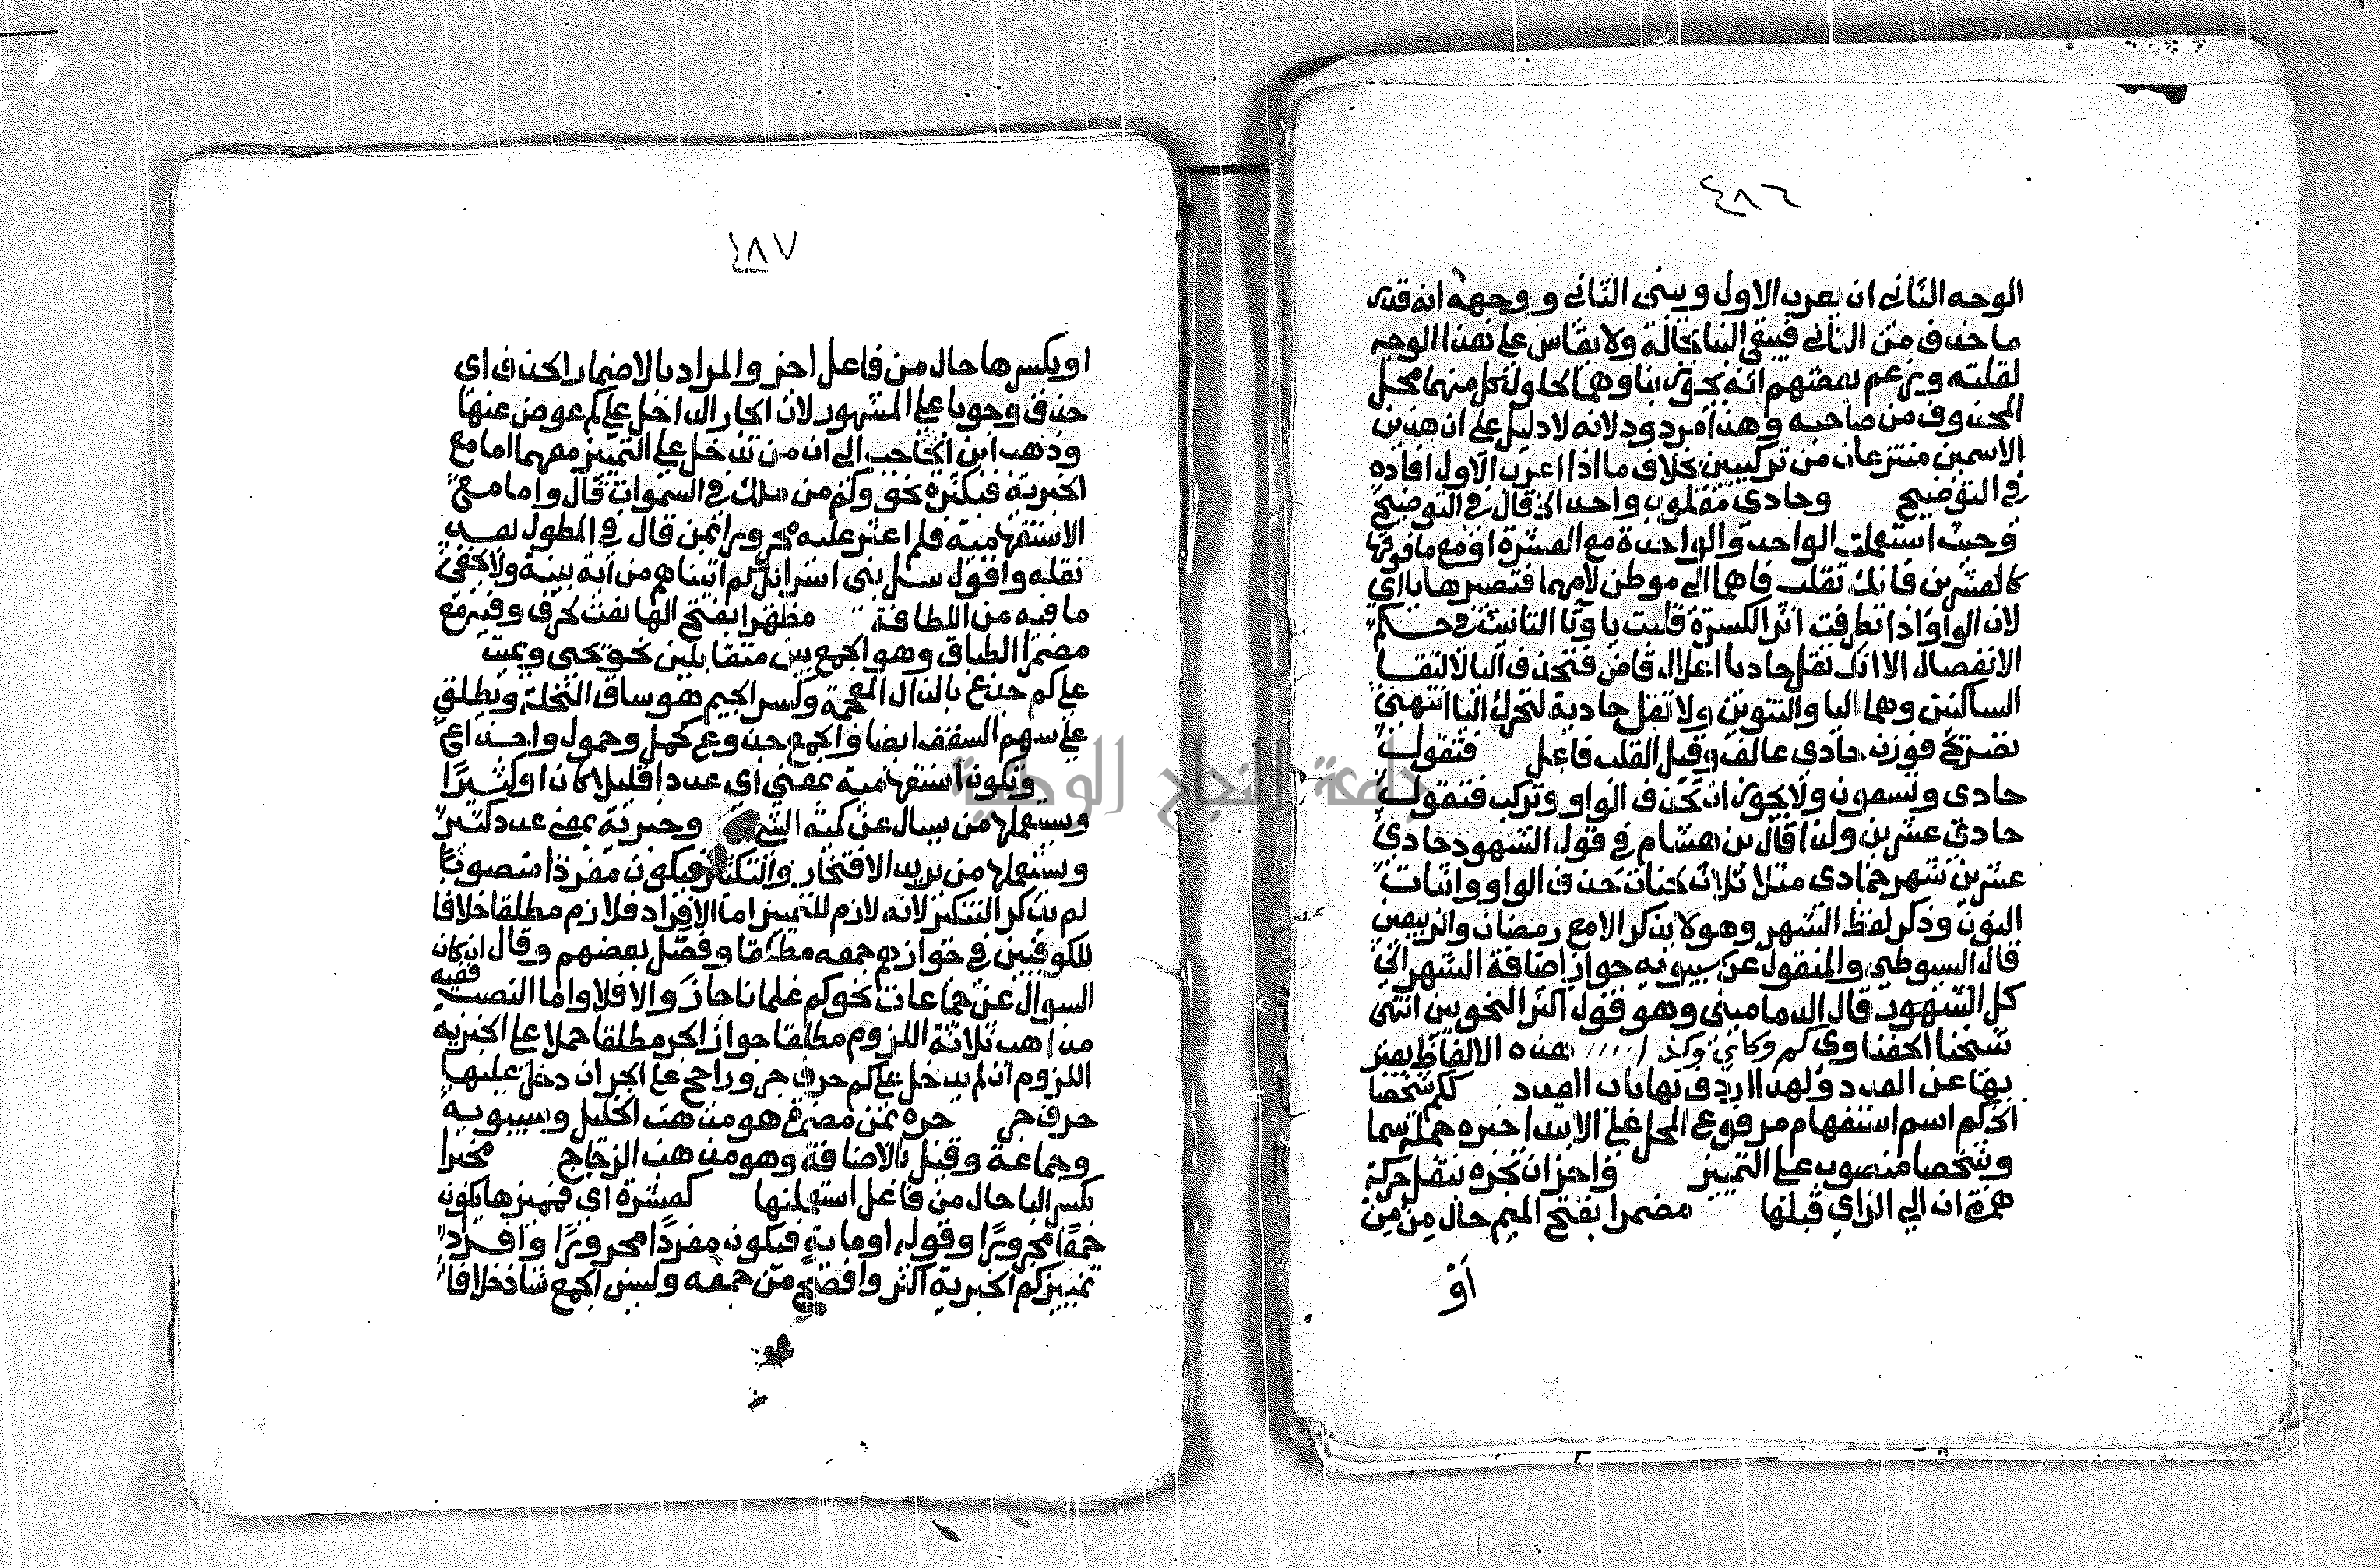 ٤٨٦
الوجه الثاني ان يعرب الاول ويبنى الثاني و وجهه انه قدر
ما حذف من الثاني فيبقى البنا بحاله ولا يقاس على هذا الوجه
لقلته وزعم بعضهم انه يجوز بناوهما لحلول كل منهما محل
المحذوف من صاحبه وهذا مردود لانه لا دليل على ان هذين
الاسمين منتزعان من تركيبين بخلاف ما اذا اعرب الاول افاده
في التوضيح وحادي مقلوب واحد الخ قال في التوضيح
وحيث استعملت الواحد والواحدة مع العشرة او مع ما فوقها
كالعشرين فانك تقلب فاهما الى موطن لامهما فتصيرها يا اي
لان الواو اذا تطرفت اثر الكسرة قلبت يا وتا التانيث في حكم
الانفصال الا انك تقل حاديا اعلال قاض فتحذف اليا لالتقا
الساكنين وهما اليا والتنوين ولا تقل حادية لتحرك اليا انتهى
تصريح فوزن حادي عالف وقبل القلب فاعل فتقول
حادي وتسعون ولا يجوز ان تحذف الواو وتركب فتقول
حادي عشرين ولذا قال بن هشام في قول الشهود حادي
عشرين شهر جمادى مثلا ثلاث لحنات حذف الواو واثبات
النون وذكر لفظ الشهر وهو لا يذكر الا مع رمضان والربيعين
قال السيوطي والمنقول عن سيبويه جواز اضافة الشهر الى
كل الشهور قال الدماميني وهو قول اكثر النحويين انتهى
شيخنا الحفناوي كم وكاي وكذا هذه الالفاظ يعبر
بها عن العدد ولهذا اردف بها باب العدد ككم شخصا
الخ كم اسم استفهام مرفوع المحل على الابتدا خبره جملة سما
وشخصا منصوب على التمييز واجز ان تجره بنقل حركة
همزة ان الى الزاي قبلها مضمرا بفتح الميم حال من من
أو
٤٨٧
او بكسرها حال من فاعل اجز والمراد بالاضمار الحذف اي
حذف وجوبا على المشهور لان الجار الداخل على كم عوض عنها
وذهب ابن الحاجب الى ان من تدخل على التمييز معهما اما مع
الخبرية فبكثرة نحو وكم من ملك في السموات قال واما مع
الاستفهامية فلم اعثر عليه مجرورا بمن قال في المطول بعد
نقله واقول سل بني اسرائيل كم اتيناهم من آية بينة ولا يخفى
ما فيه من اللطافة مظهرا بفتح الها نعت لحرف وفيه مع
مضمرا الطباق وهو الجمع بين متقابلين نحو يحي ويميت
على كم جذع بالذال المعجمة وكسر الجيم هو ساق النخلة ويطلق
على سهم السقف ايضا والجمع جذوع كحمل وحمول واحد اعي
وتكون استفهامية بمعنى اي عددا قليلا كان او كثيرًا
ويستعملها من يسال عن كمية الشي وخبرية بمعنى عدد كثير
ويستعملها من يريد الافتخار والتكثير فيكون مفردا منصوبًا
لم يذكر التنكير لانه لازم للتمييز اما الافراد فلازم مطلقا خلافا
للكوفيين في جواز جمعه مطلقا وفصل بعضهم وقال ان كان
السوال عن جماعات نحو كم غلمانا جاز والا فلا واما النصب ففيه
مذاهب ثلاثة اللزوم مطلقا جواز الجر مطلقا حملا على الخبرية
اللزوم ان لم يدخل على كم حرف جر وراجح على الجر ان دخل عليها
حرف جر جره بمن مضمرة هو مذهب الخليل وسيبويه
وجماعة وقيل بالاضافة وهو مذهب الزجاج مخبرا
بكسر البا حال من فاعل استعملنها كعشرة اي فمميزها يكون
جمعًا مجرورًا وقوله او مايةٍ فيكون مفردًا مجرورًا وافراد
تمييز كم الخبرية اكثر وافصح من جمعه وليس الجمع شاذ خلافا